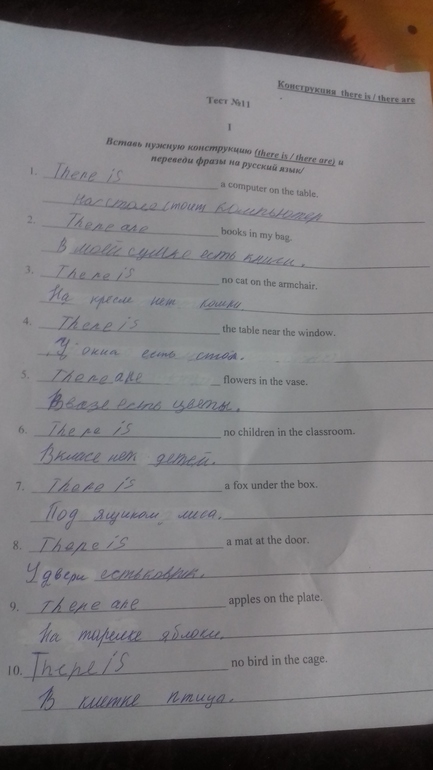 Конструкция there is / there are
Тест №11
I
Вставь нужную конструкцию (there is / there are) и
переведи фразы на русский язык/
1. There is a computer on the table.
На столе стоит компьютер
2. There are books in my bag.
В моей сумке есть книги.
3. There is no cat on the armchair.
На кресле нет кошки
4. There is the table near the window.
У окна есть стол.
5. There are flowers in the vase.
В вазе есть цветы.
6. There is no children in the classroom.
В класе нет детей.
7. There is a fox under the box.
Под ящиком лиса.
8. There is a mat at the door.
У двери есть коврик.
9. there are apples on the plate.
На тарелке яблоки.
10. There is no bird in the cage.
В клетке птица.